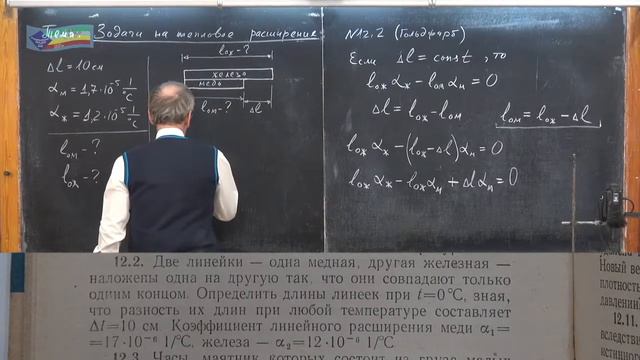 Тема: Задачи на тепловое расширение
Δl = 10 см
αм = 1,7·10⁻⁵ 1/°C
αж = 1,2·10⁻⁵ 1/°C
l₀м - ?
l₀ж - ?
l₀ж - ?
железо
медь
l₀м - ?
Δl
N12.2 (Гольдфарб)
Если Δl = const, то
l₀ж αж - l₀м αм = 0
Δl = l₀ж - l₀м
l₀м = l₀ж - Δl
l₀ж αж - (l₀ж - Δl) αм = 0
l₀ж αж - l₀ж αм + Δl αм = 0
12.2. Две линейки — одна медная, другая железная —
наложены одна на другую так, что они совпадают только
одним концом. Определить длины линеек при t=0°C, зная,
что разность их длин при любой температуре составляет
Δl=10 см. Коэффициент линейного расширения меди α₁=
=17·10⁻⁶ 1/°C, железа — α₂=12·10⁻⁶ 1/°C
12.3. Часы, маятник которых состоит из груза
Новый
плотность
давлении
12.11.
вследств